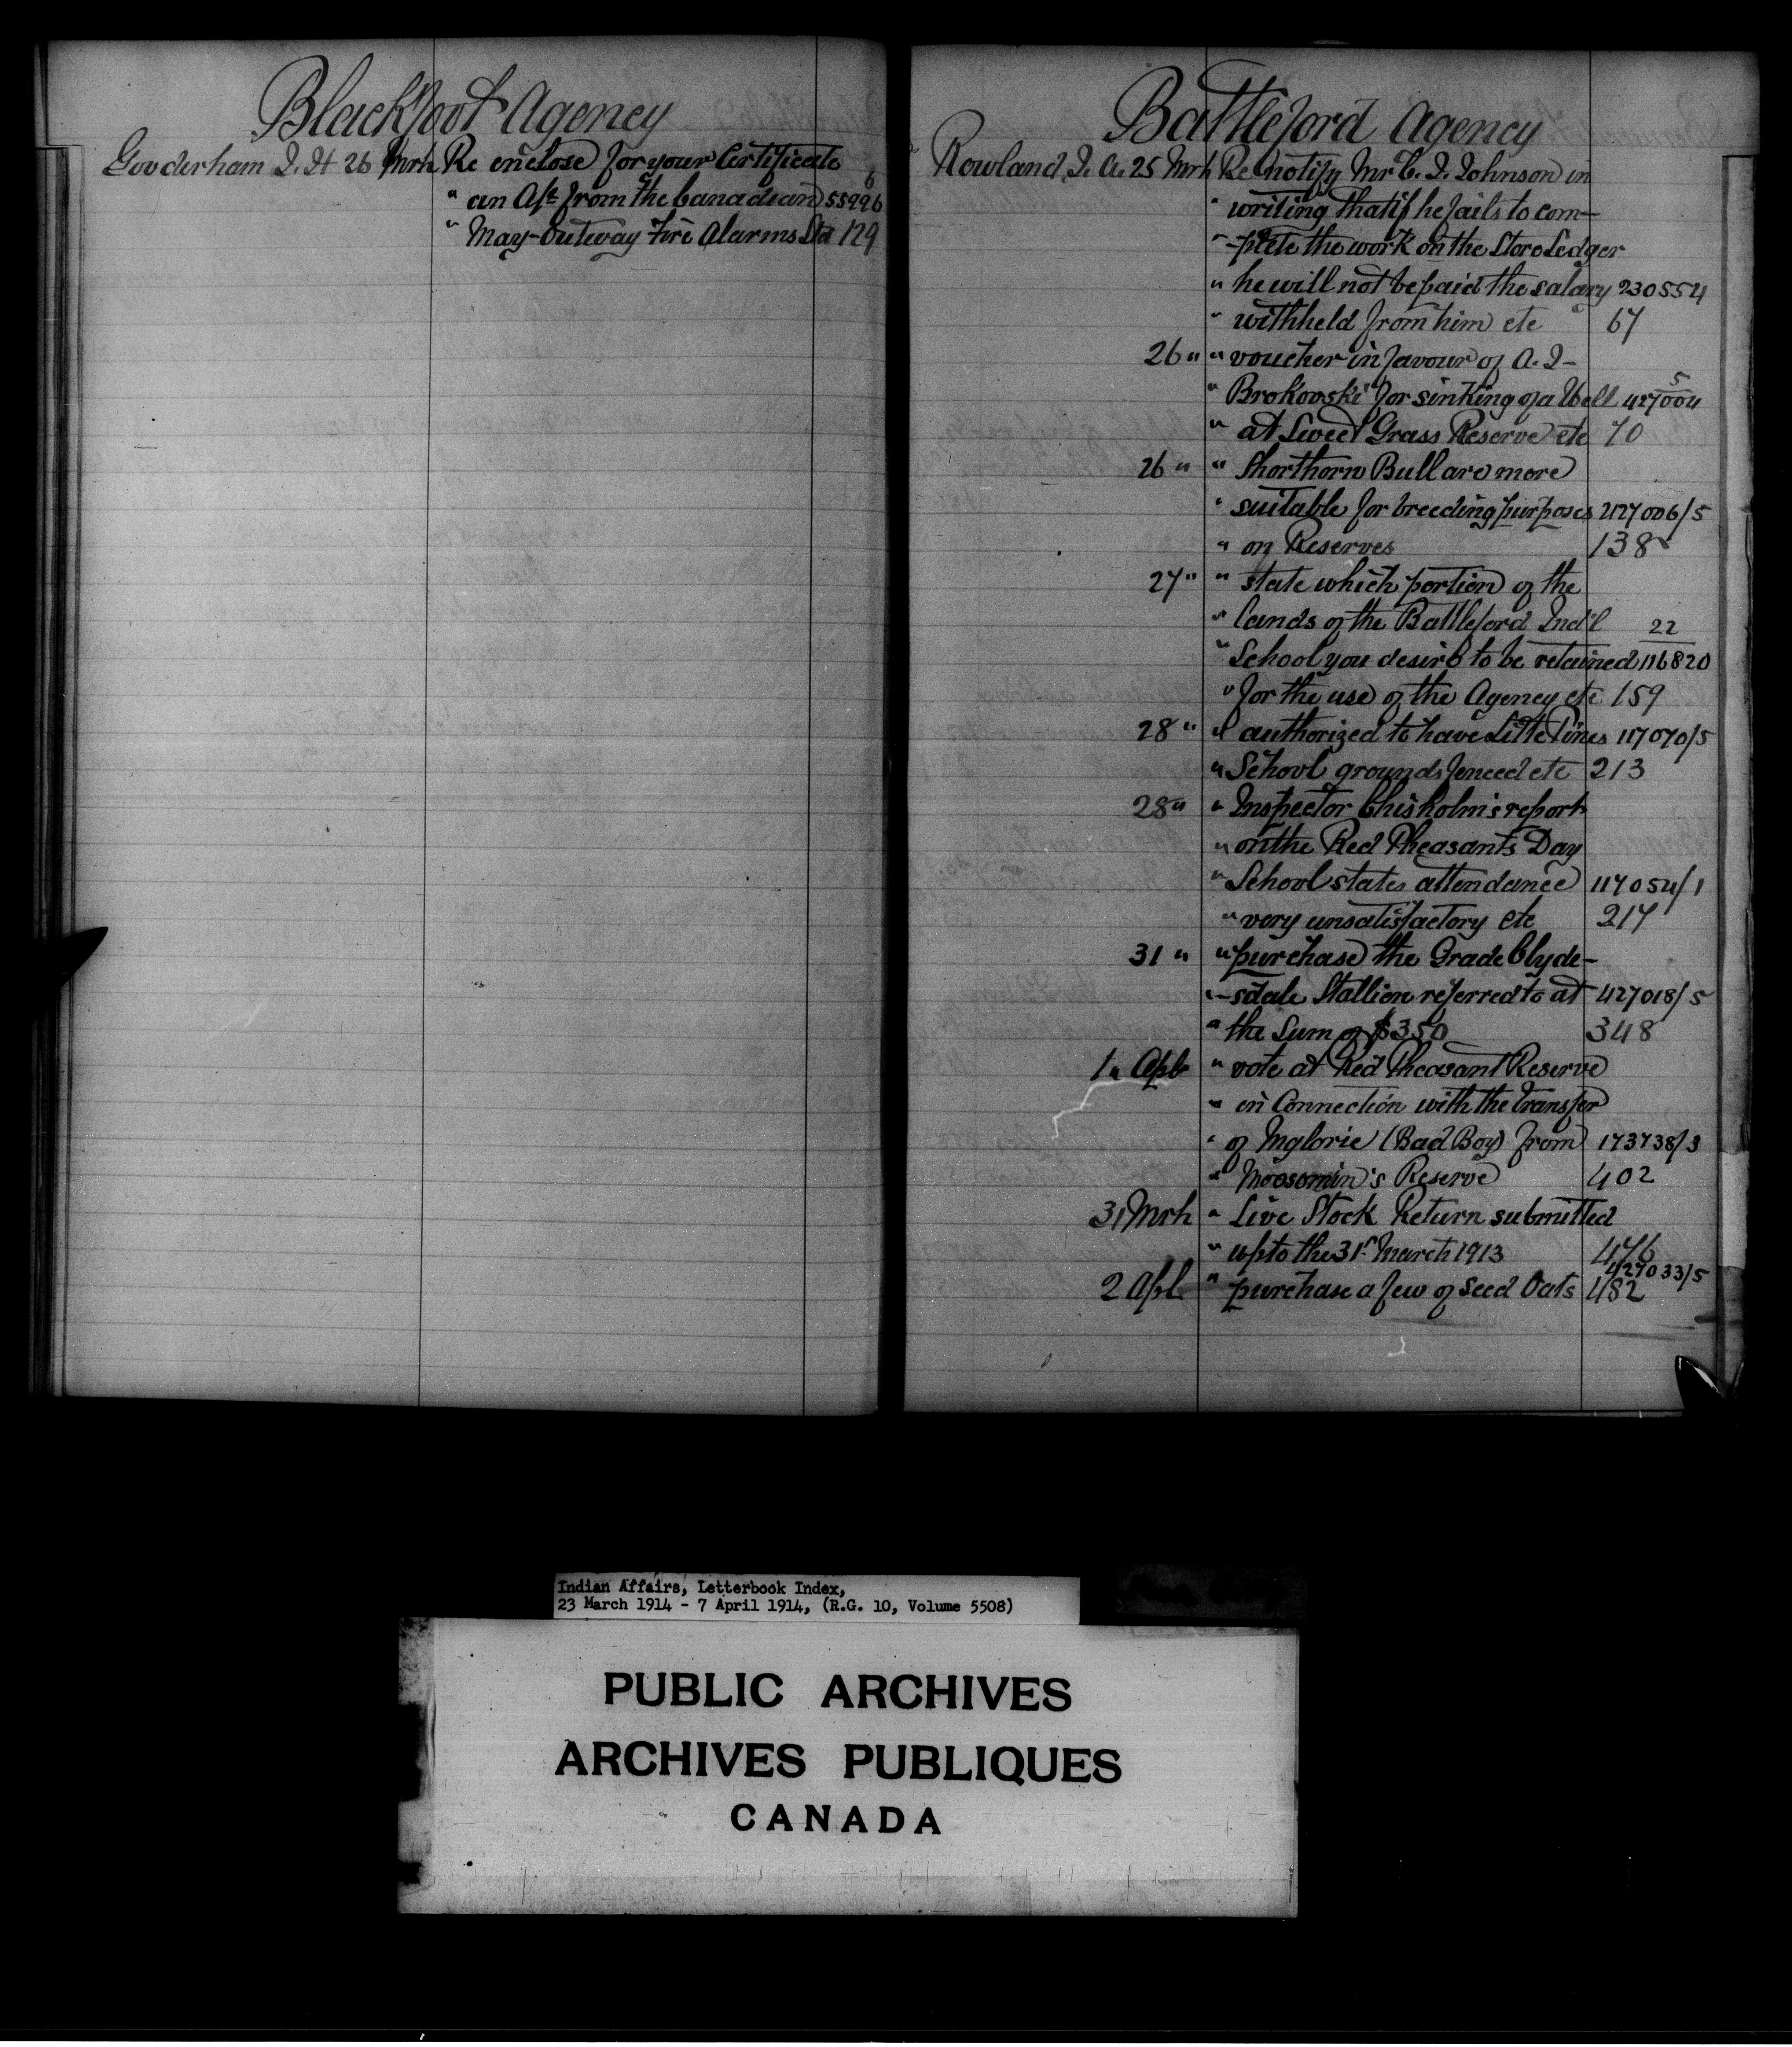 Blackfoot Agency
Gooderham J. H 26 Mrh Re enclose for your Certificate 6
" an A/c from the Canadian 55996
" May-Outway Fire Alarms Ltd 129
Battleford Agency
Rowland J. A. 25 Mrh Re notify Mr C. J. Johnson in
" writing that if he fails to com-
" -plete the work on the Store Ledger
" he will not be paid the salary 230554
" withheld from him etc 67
26 " " voucher in favour of A. J-
" Brokovski for sinking of a Well 5
427004
" at Sweet Grass Reserve etc 70
26 " " Shorthorn Bull are more
" suitable for breeding purposes 427006/5
" on Reserves 138
27 " " state which portion of the
" lands of the Battleford Ind'l 22
" School you desire to be retained 116820
" for the use of the Agency etc 159
28 " " authorized to have Litte Pines 117070/5
" School grounds fenced etc 213
28 " " Inspector Chisholm's report
" on the Red Pheasants Day
" School states attendance 117054/1
" very unsatisfactory etc 217
31 " " purchase the Grade Clyde-
" -sdale Stallion referred to at 427018/5
" the Sum of $350 348
1 " Apl " vote at Red Pheasant Reserve
" in Connection with the transfer
" of Myglorie (Bad Boy) from 173738/3
" Moosomin's Reserve 402
31 Mrh " Live Stock Return submitted
" up to the 31st March 1913 476
427033/5
2 Apl " purchase a few of Seed Oats 482
Indian Affairs, Letterbook Index,
23 March 1914 - 7 April 1914, (R.G. 10, Volume 5508)
PUBLIC ARCHIVES
ARCHIVES PUBLIQUES
CANADA